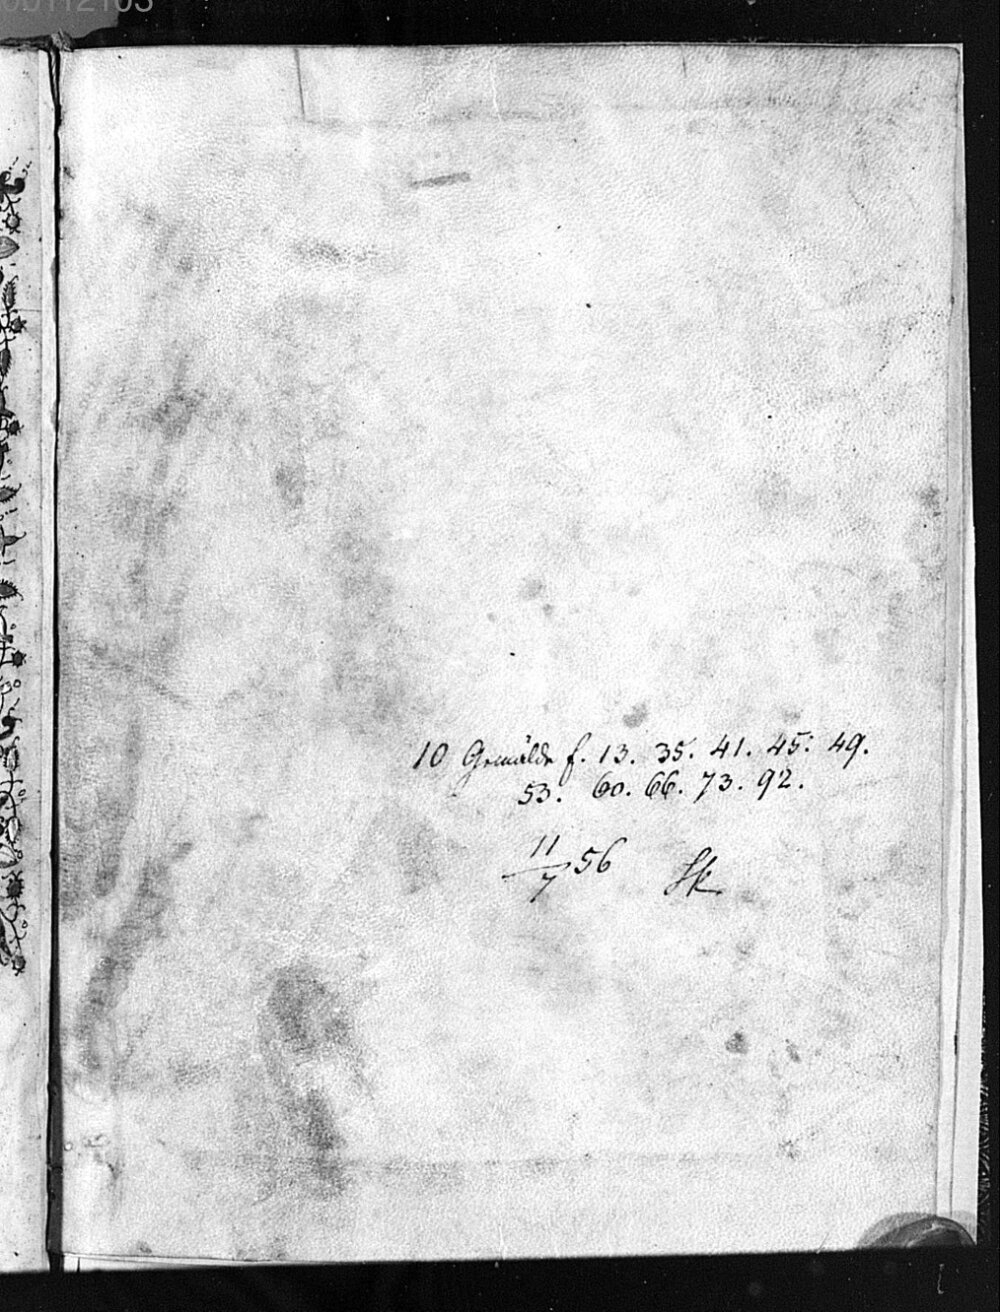 10 Gemälde f. 13. 35. 41. 45. 49.
53. 60. 66. 73. 92.
11/7 56 Sk